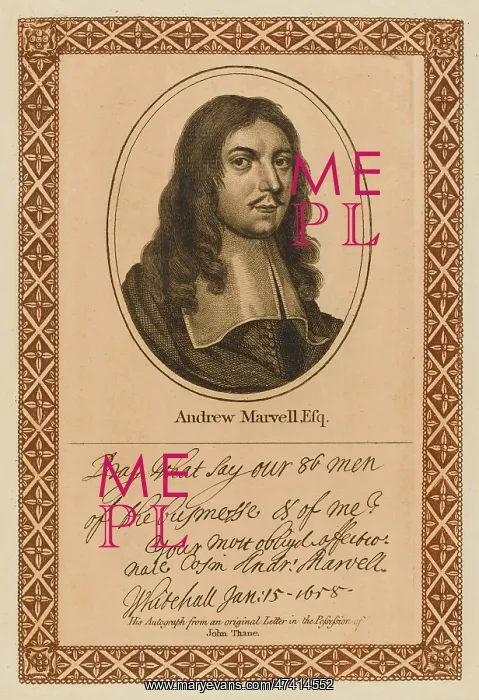 ME
PL
Andrew Marvell Esq.
Pray what say our 86 men
ME
PL
of the busnesse & of me?
Your most obliged affectio:
nate Cosin Andr: Marvell.
Whitehall Jan: 15 - 1658 -
His Autograph from an original Letter in the Possession of
John Thane.
www.maryevans.com/47414552